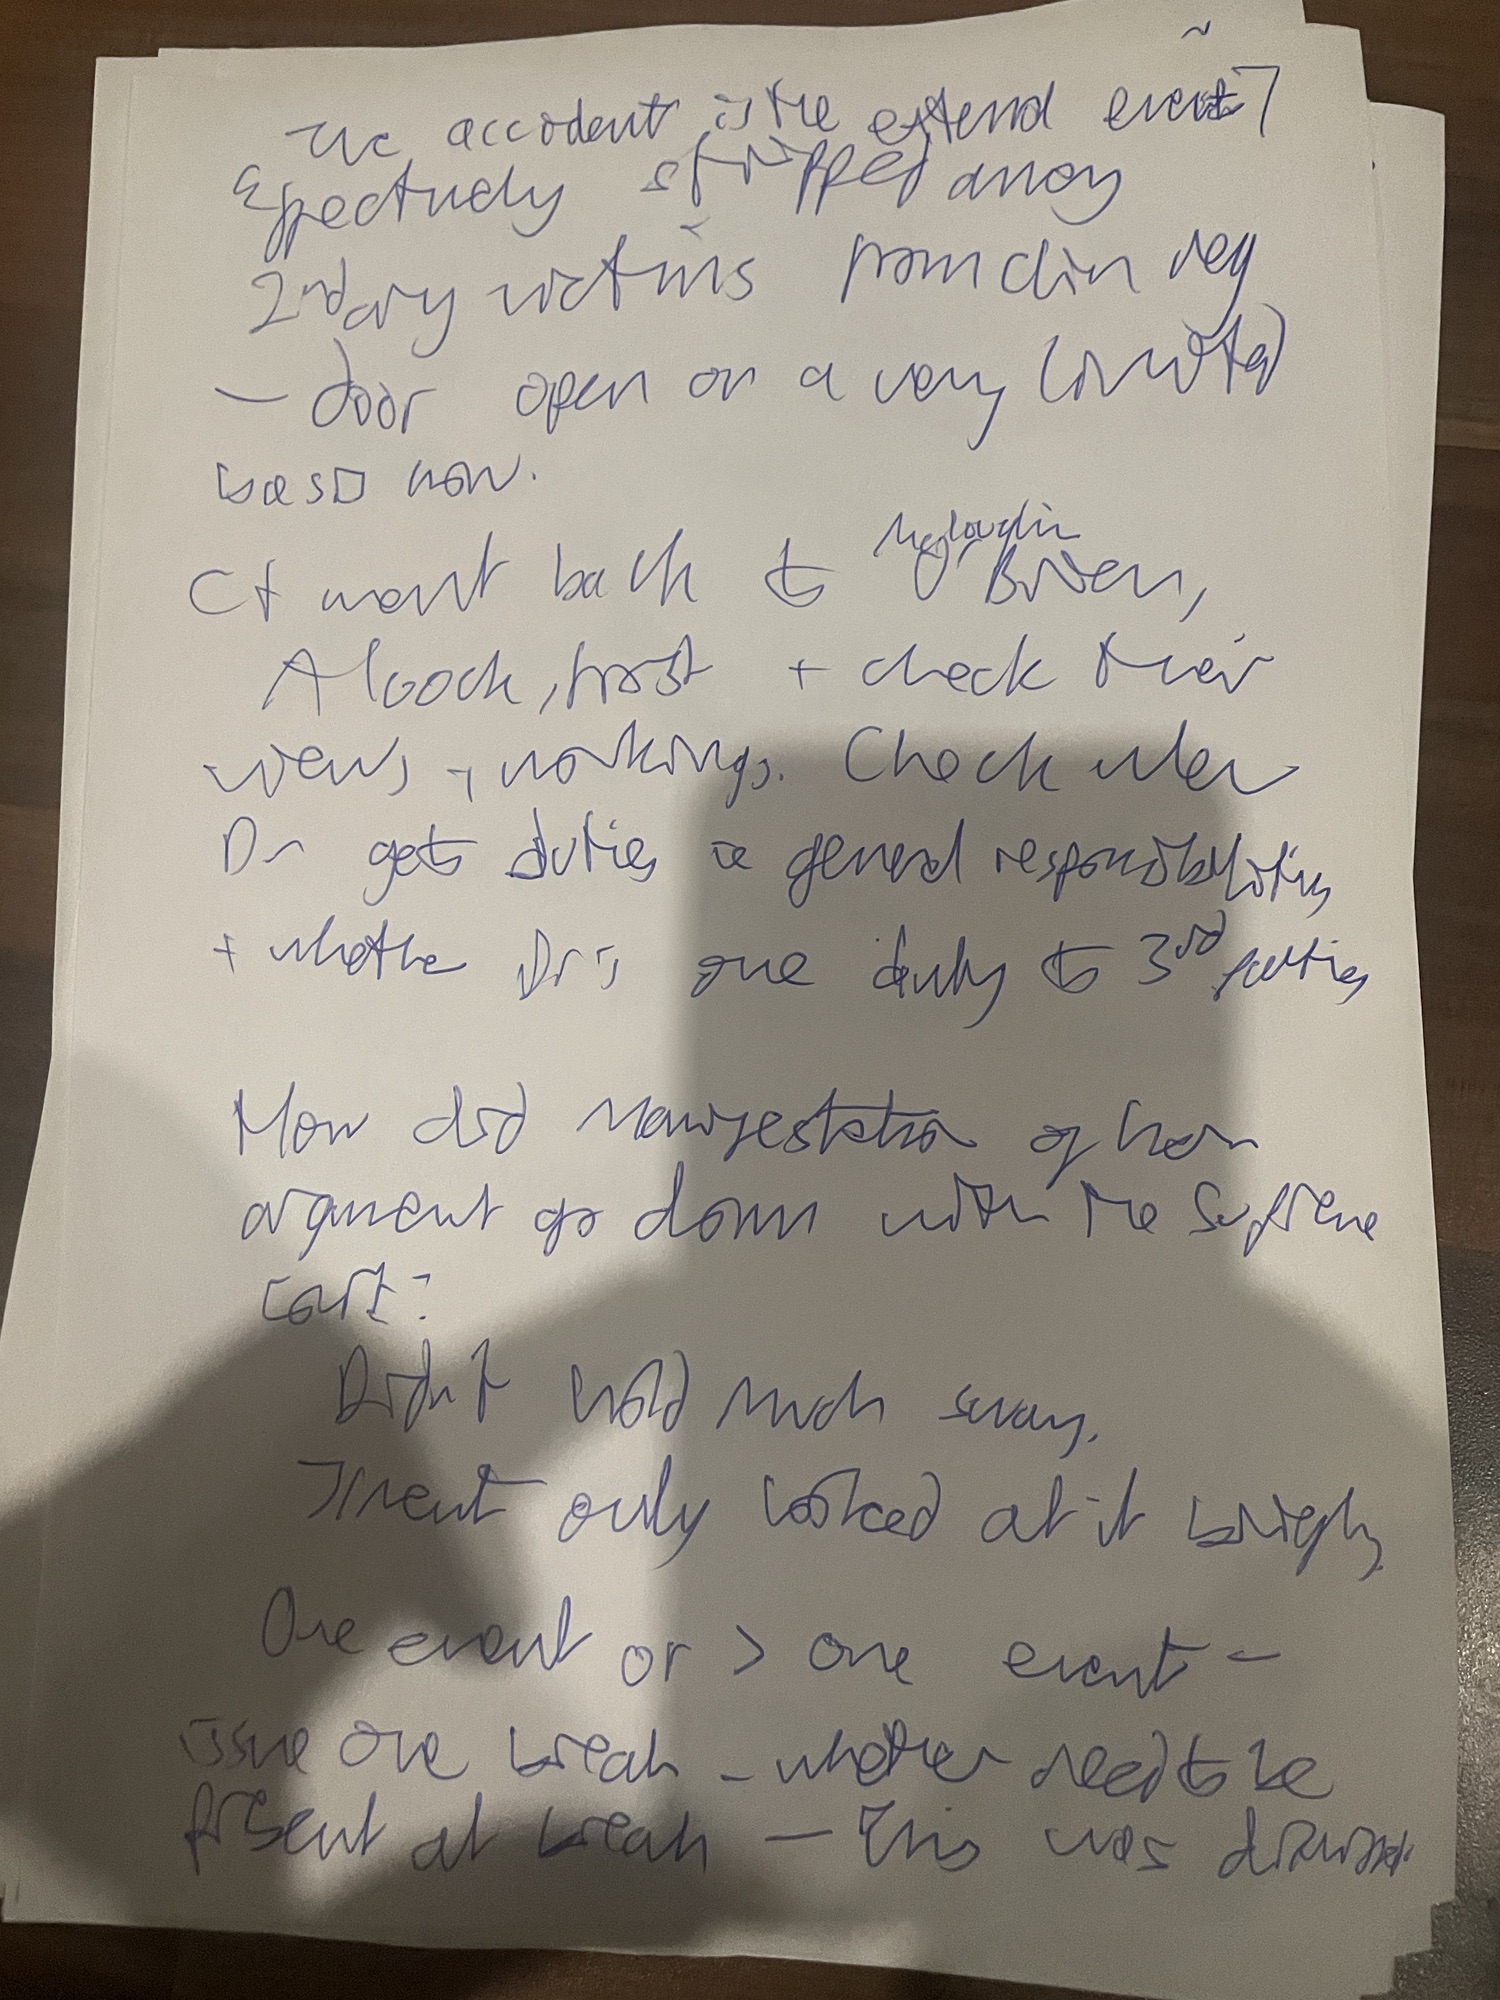 The accident is the external event?
Effectively stripped away
2ndary victims from clin neg
— door open on a very limited
basis now.
Ct went back to McLoughlin O'Brien,
Alcock, Frost + check their
views + workings. Check when
Dr gets duties ie general responsibilities
+ whether Drs owe duty to 3rd parties
How did manifestation of harm
argument go down with the Supreme
Court?
Didn't hold much sway.
Only looked at it briefly
One event or > one event –
issue one breach – whether need to be
present at breach — This was